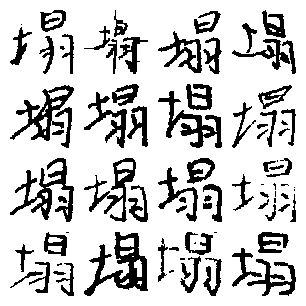 塌塌塌塌
塌塌塌塌
塌塌塌塌
塌塌塌塌